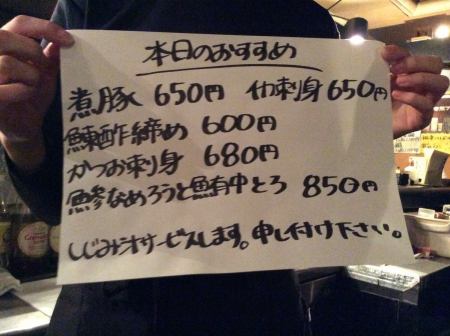 本日のおすすめ
煮豚 650円 イカ刺身 650円
鰊酢〆締め 600円
かつお刺身 680円
鰺なめろうと鮪中とろ 850円
しじみ汁サービスします。申し付け下さい。